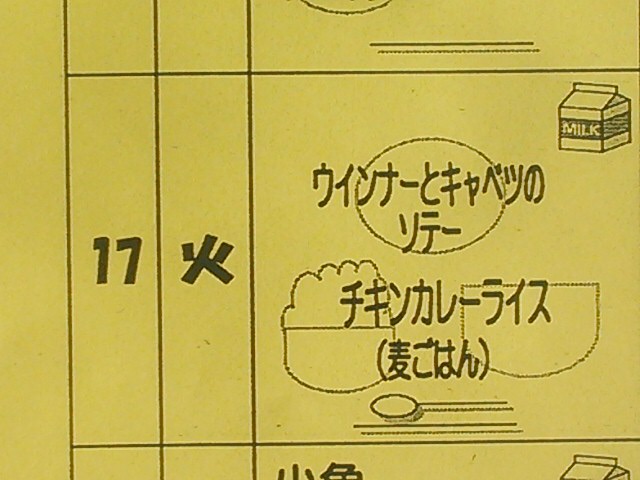 17 火
MILK
ウインナーとキャベツの
ソテー
チキンカレーライス
(麦ごはん)
小魚